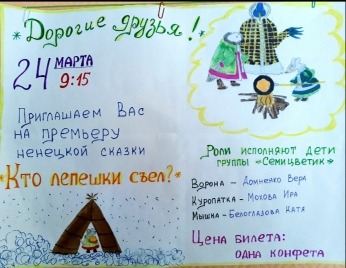 Дорогие друзья!
24 МАРТА
9:15
Приглашаем Вас
на премьеру
ненецкой сказки
"Кто лепешки съел?"
Роли исполняют дети
группы «Семицветик»
Ворона – Домненко Вера
Куропатка – Мохова Ира
Мышка – Белоглазова Катя
Цена билета:
одна конфета